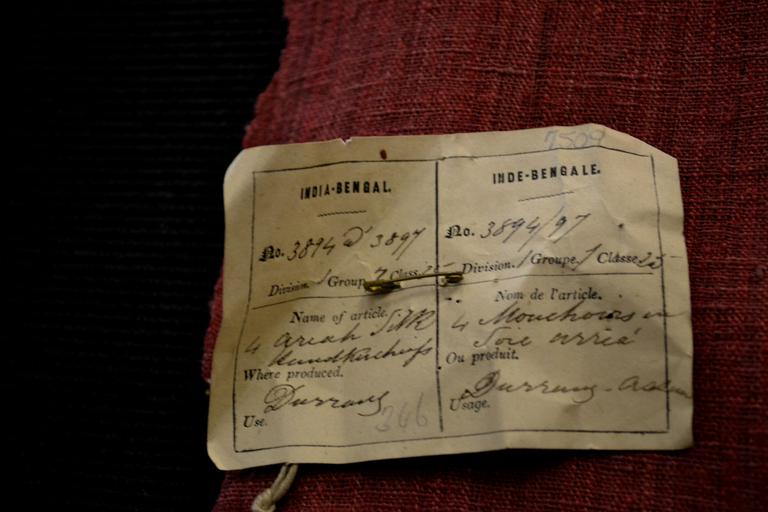 7509
INDIA-BENGAL.
No. 3894 à 3897
Division. 1 Group 7 Class 25
Name of article.
4 Ariah Silk
Handkerchiefs
Where produced.
Durrang
Use.
346
INDE-BENGALE.
No. 3894/97
Division. 1 Groupe. 7 Classe 25
Nom de l'article.
4 Mouchoirs en
Soie arria
Ou produit.
Durrang - Assam
Usage.